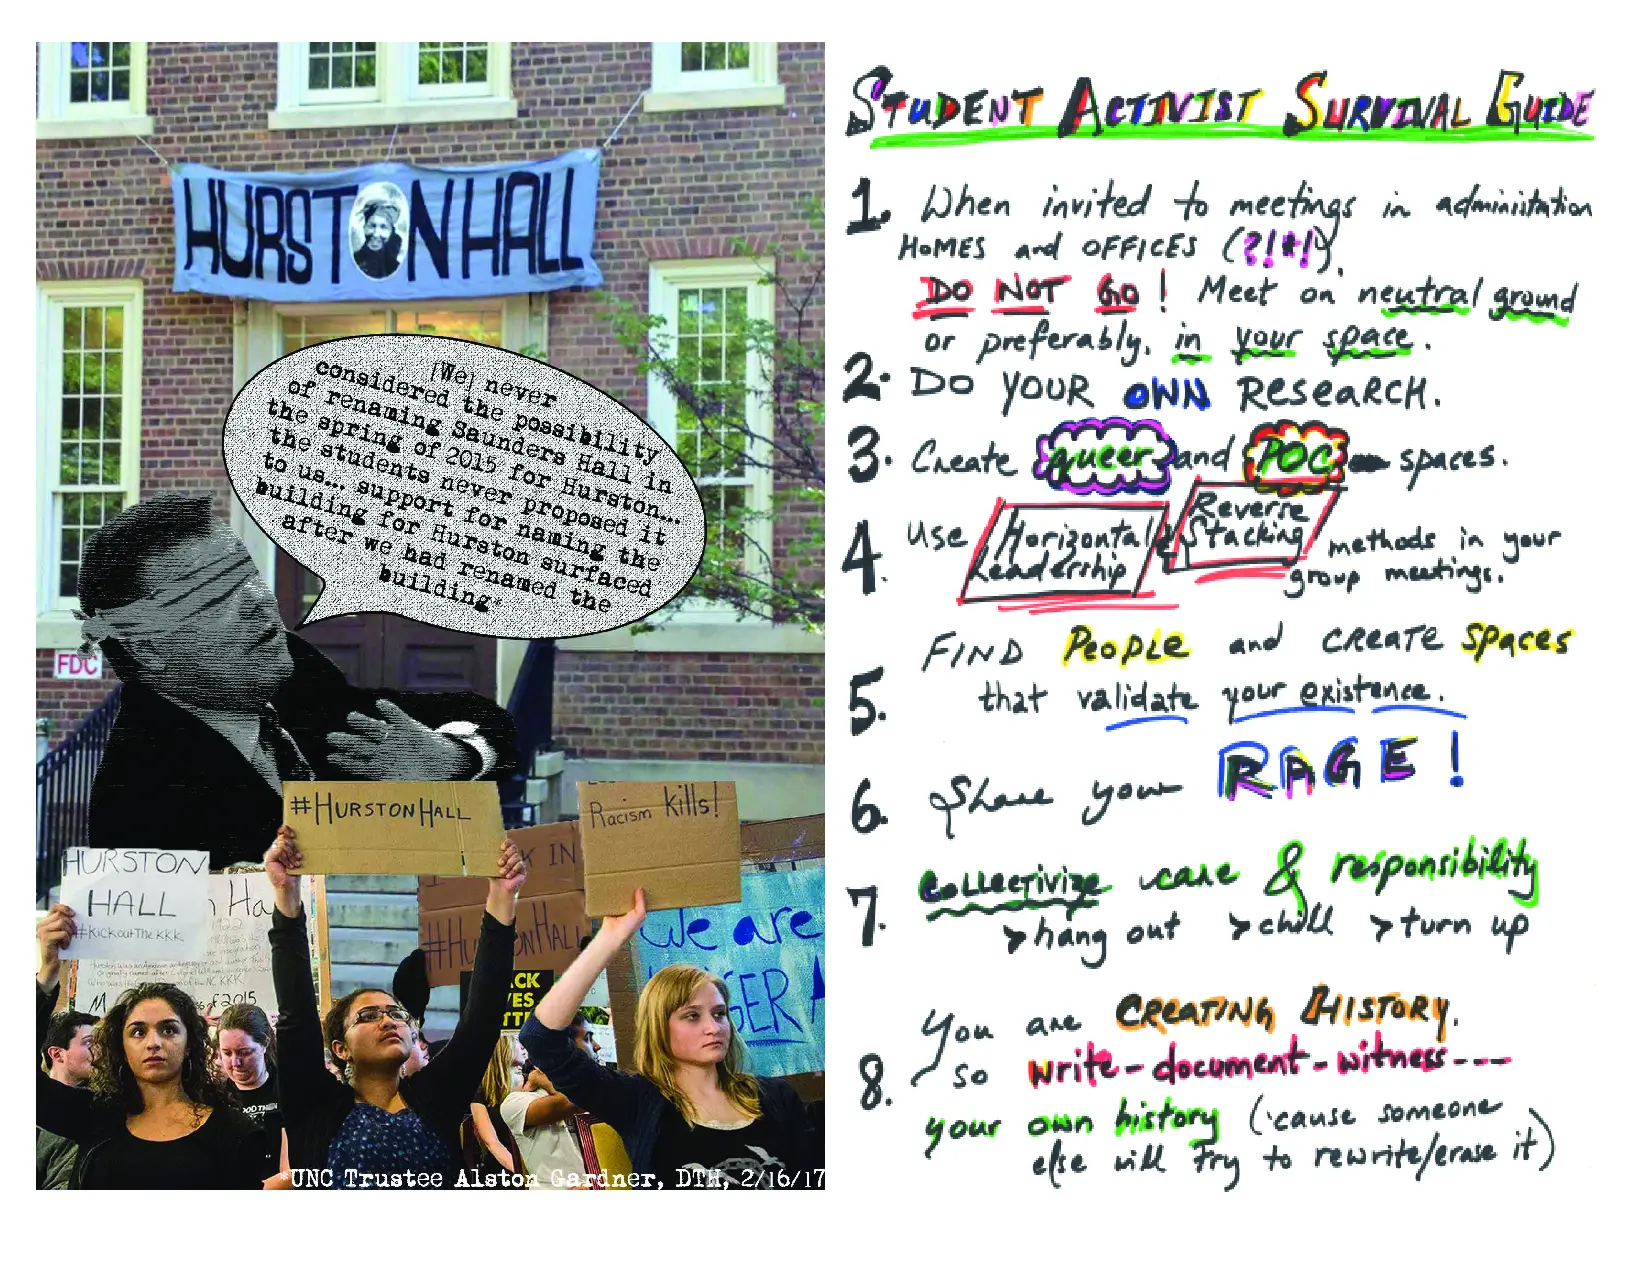 HURSTON HALL
[We] never
considered the possibility
of renaming Saunders Hall in
the spring of 2015 for Hurston...
the students never proposed it
to us... support for naming the
building for Hurston surfaced
after we had renamed the
building*
FDC
#HURSTONHALL
Racism kills!
HURSTON
HALL
#KickouttheKKK
K IN
#HURSTONHALL
We are
of 2015
*UNC Trustee Alston Gardner, DTH, 2/16/17
STUDENT ACTIVIST SURVIVAL GUIDE
1. When invited to meetings in administation
HOMES and OFFICES (?!*!),
DO NOT GO! Meet on neutral ground
or preferably, in your space.
2. DO YOUR OWN RESEARCH.
3. Create queer and POC spaces.
4. Use Horizontal Leadership & Reverse Stacking methods in your
group meetings.
5. FIND PEOPLE and CREATE SPACES
that validate your existence.
6. Share your RAGE!
7. Collectivize care & responsibility
>hang out >chill >turn up
8. You are CREATING HISTORY.
so write-document-witness---
your own history ('cause someone
else will try to rewrite/erase it)